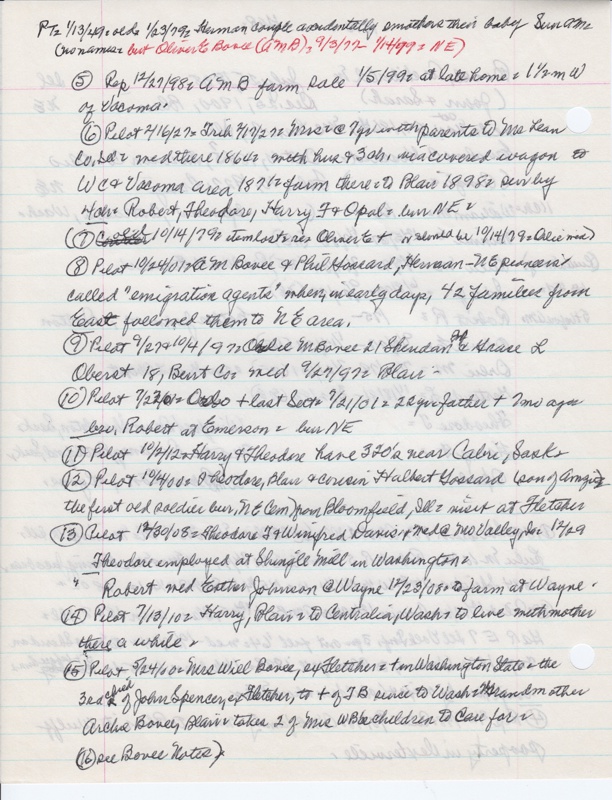 PT= 1/13/49= old= 1/23/79= Herman couple accidentally smothers their baby Sun AM=
(no name= but Oliver E Bovee (AMB)= 9/3/72 1/14/79= NE)
(5) Rep 12/27/98= AMB farm sale 1/5/99= at late home = 1½ m W
of Vacoma.
(6) Pilot 2/16/27= Trib 2/17/27= Mrs= @ 7yr with parents to McLean
Co, Ill= wed there 1864= with hus & 3 ch. via covered wagon to
WC & Vacoma area 1871= farm there= to Blair 1898= surv by
4 ch= Robert, Theodore, Harry F & Opal= bur NE=
(7) 10/14/79= item hosts= is Oliver E + is should be 10/14/79=
(8) Pilot 10/24/01= AM Bovee & Phil Gossard, Herman-NE pioneers
called "emigration agents" when, in early days, 42 families from
East followed them to NE area.
(9) Pilot 9/27 & 10/4/97= M Bovee 21 Sheridan & Grace L
Oberst 18, Burt Co= wed 9/27/97= Blair=
(10) Pilot + last Sett= 7/21/01= 22yr= father + 7 mo ago=
bro, Robert at Emerson = bur NE
(11) Pilot 10/2/12= Harry & Theodore have 320's near Cabri, Sask=
(12) Pilot 10/4/00= Theodore, Blair & cousin Halbert Gossard (son of Amzi=
the first old soldier bur, NE Cem) from Bloomfield, Ill= visit at Fletcher
(13) 12/30/08= Theodore F & Winifred Davis= wed @ Mo Valley, Ia 12/29
Theodore employed at Shingle Mill in Washington=
" Robert wed Esther Johnson @ Wayne 12/23/08= to farm at Wayne.
(14) Pilot 7/13/10= Harry, Blair= to Centralia, Wash= to live with mother
there a while=
(15) Pilot= 9/24/00= Mrs Will Bovee, ex Fletcher= + in Washington State= the
3rd child of John Spencer, ex Fletcher, to + of TB since to Wash= Grandmother
Archa Bovee, Blair= takes 2 of Mrs WB's children to care for=
(16) see Bovee Notes)